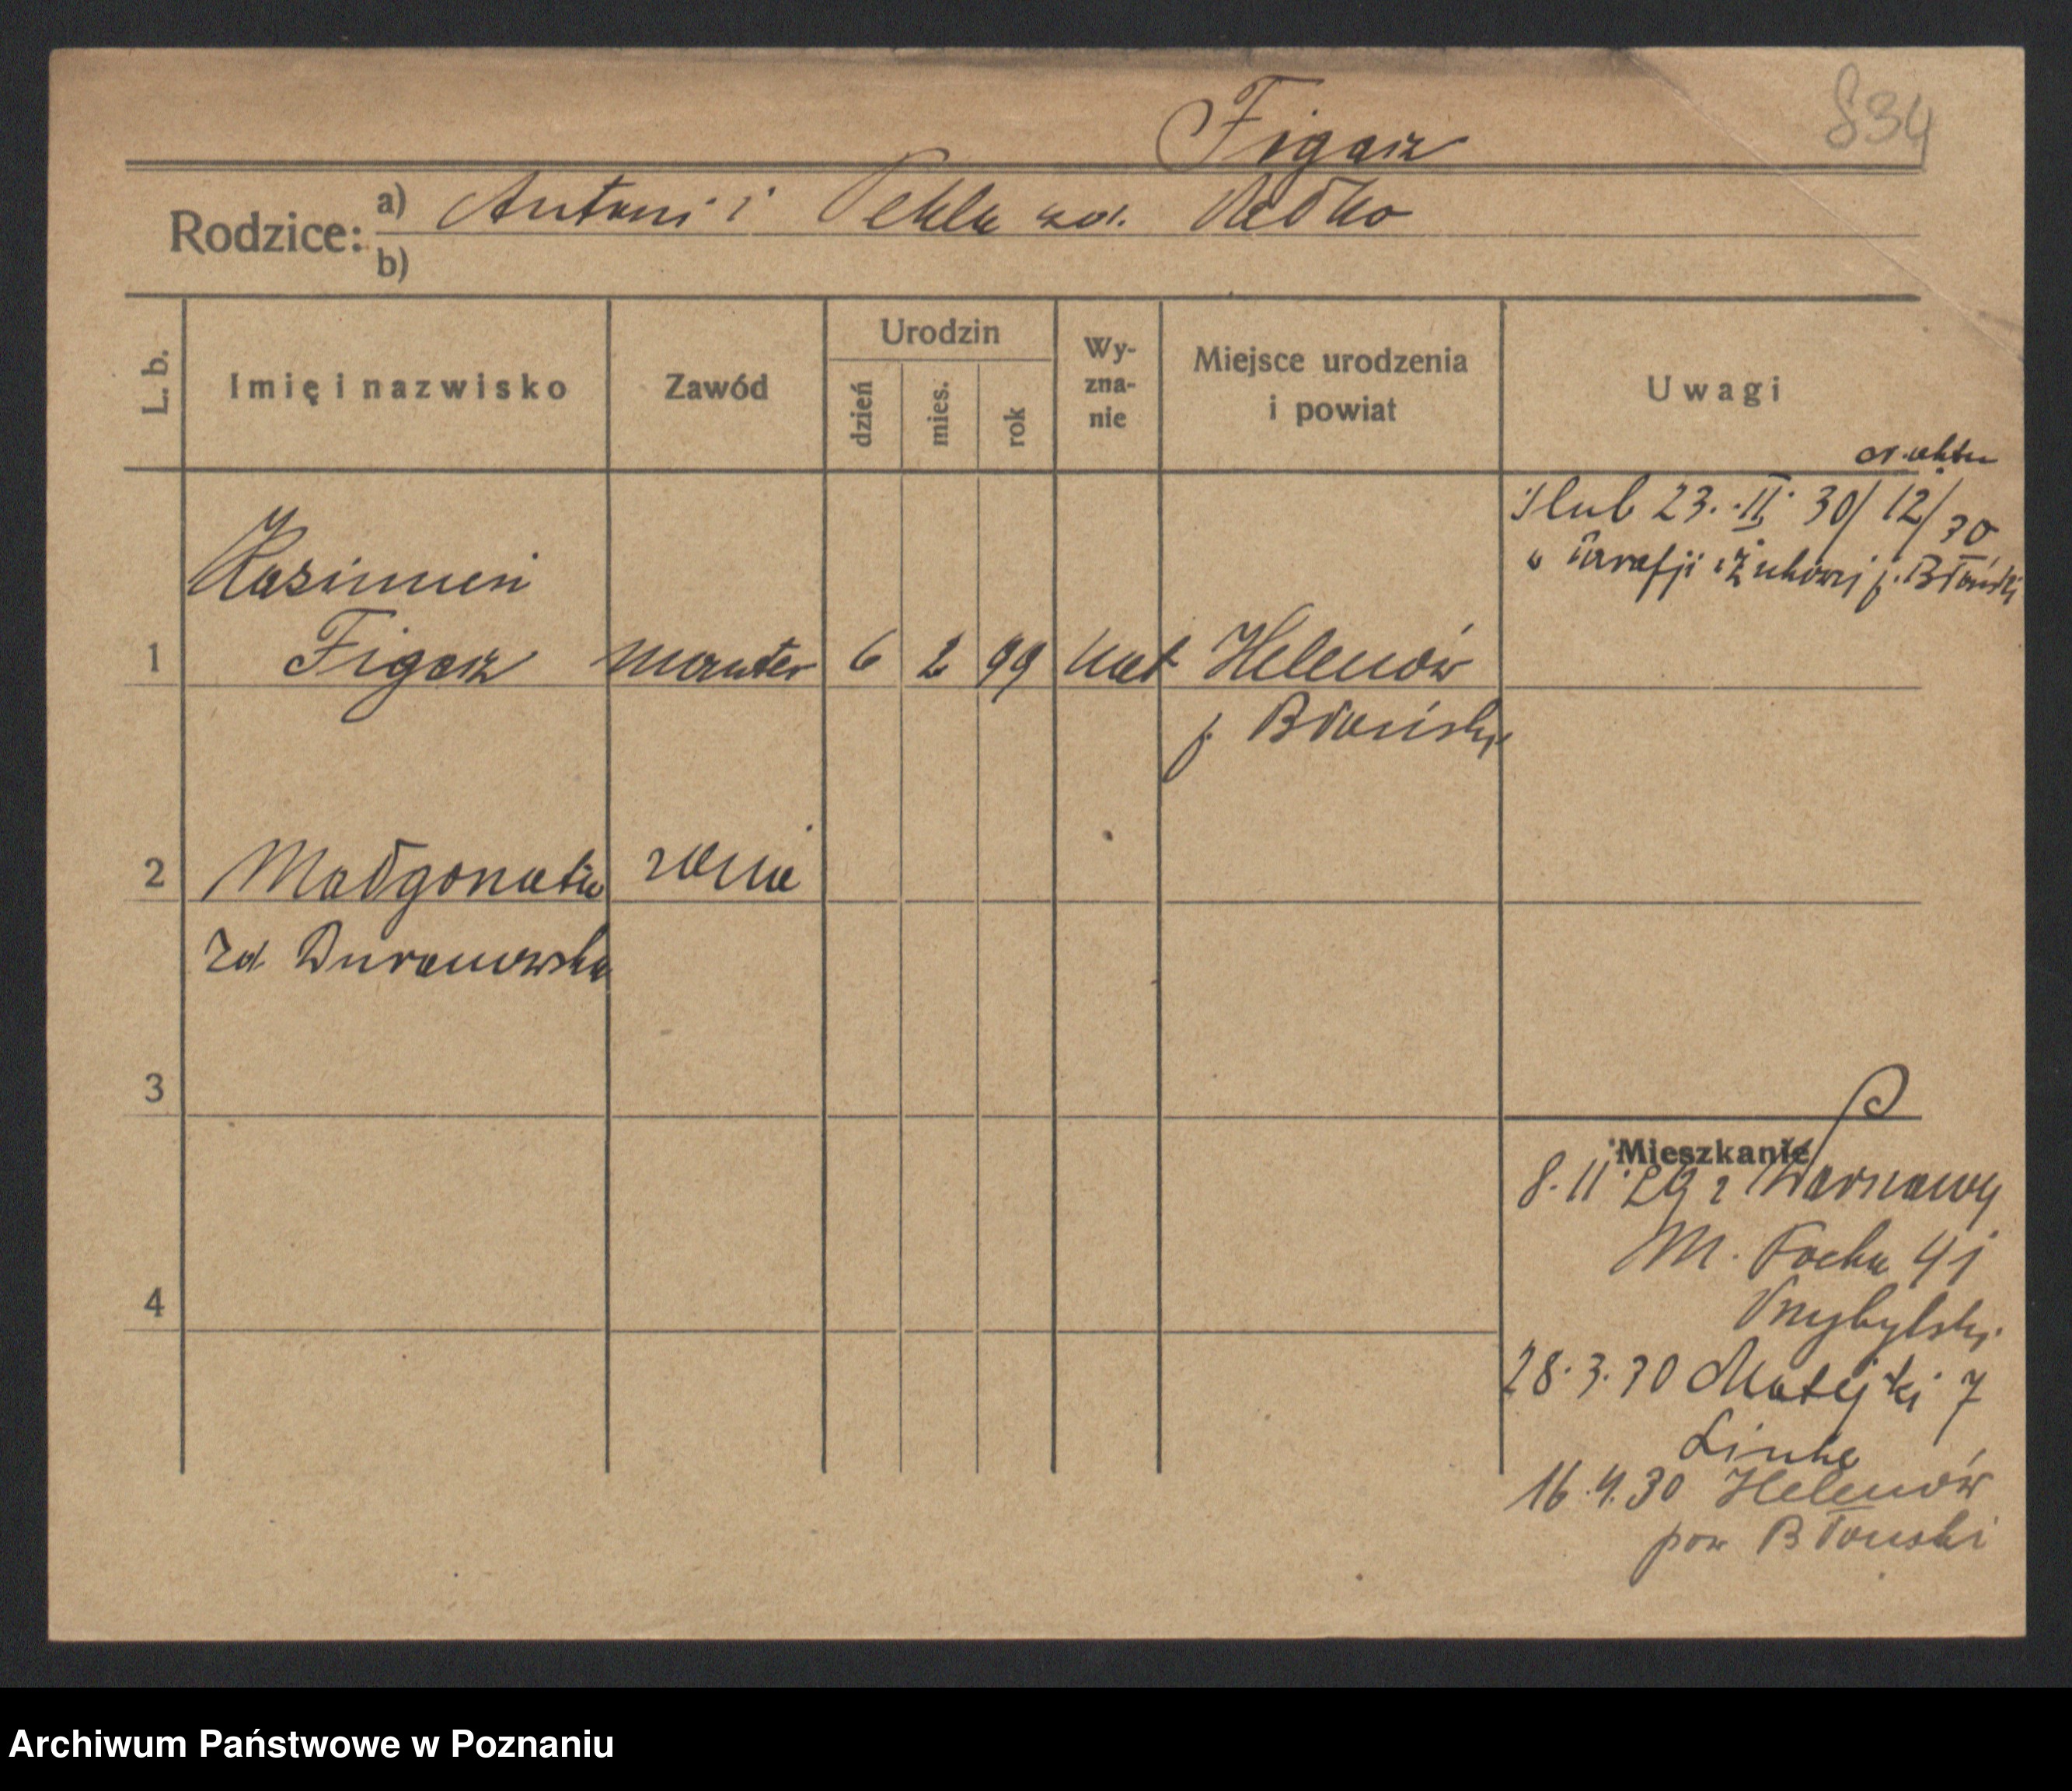 834
Figarz
Rodzice: a) Antoni i Tekla zd.
b)
L. b.
Imię i nazwisko
Zawód
Urodzin
dzień
mies.
rok
Wy-
zna-
nie
Miejsce urodzenia
i powiat
Uwagi
nr. aktu
ślub 23. II. 30/ 12/30
w Parafji Żukowej p. Błoński
Kazimierz
1 Figarz monter 6 2 99 kat Helenów
p. Błoński
2 Małgorzata żona
zd. Duranowska
3
Mieszkanie
8.11.29 z Warszawy
M. Focha 41
Przybylski
4
28.3.30 Matejki 7
Linke
16.4.30 Helenów
pow Błonski
Archiwum Państwowe w Poznaniu